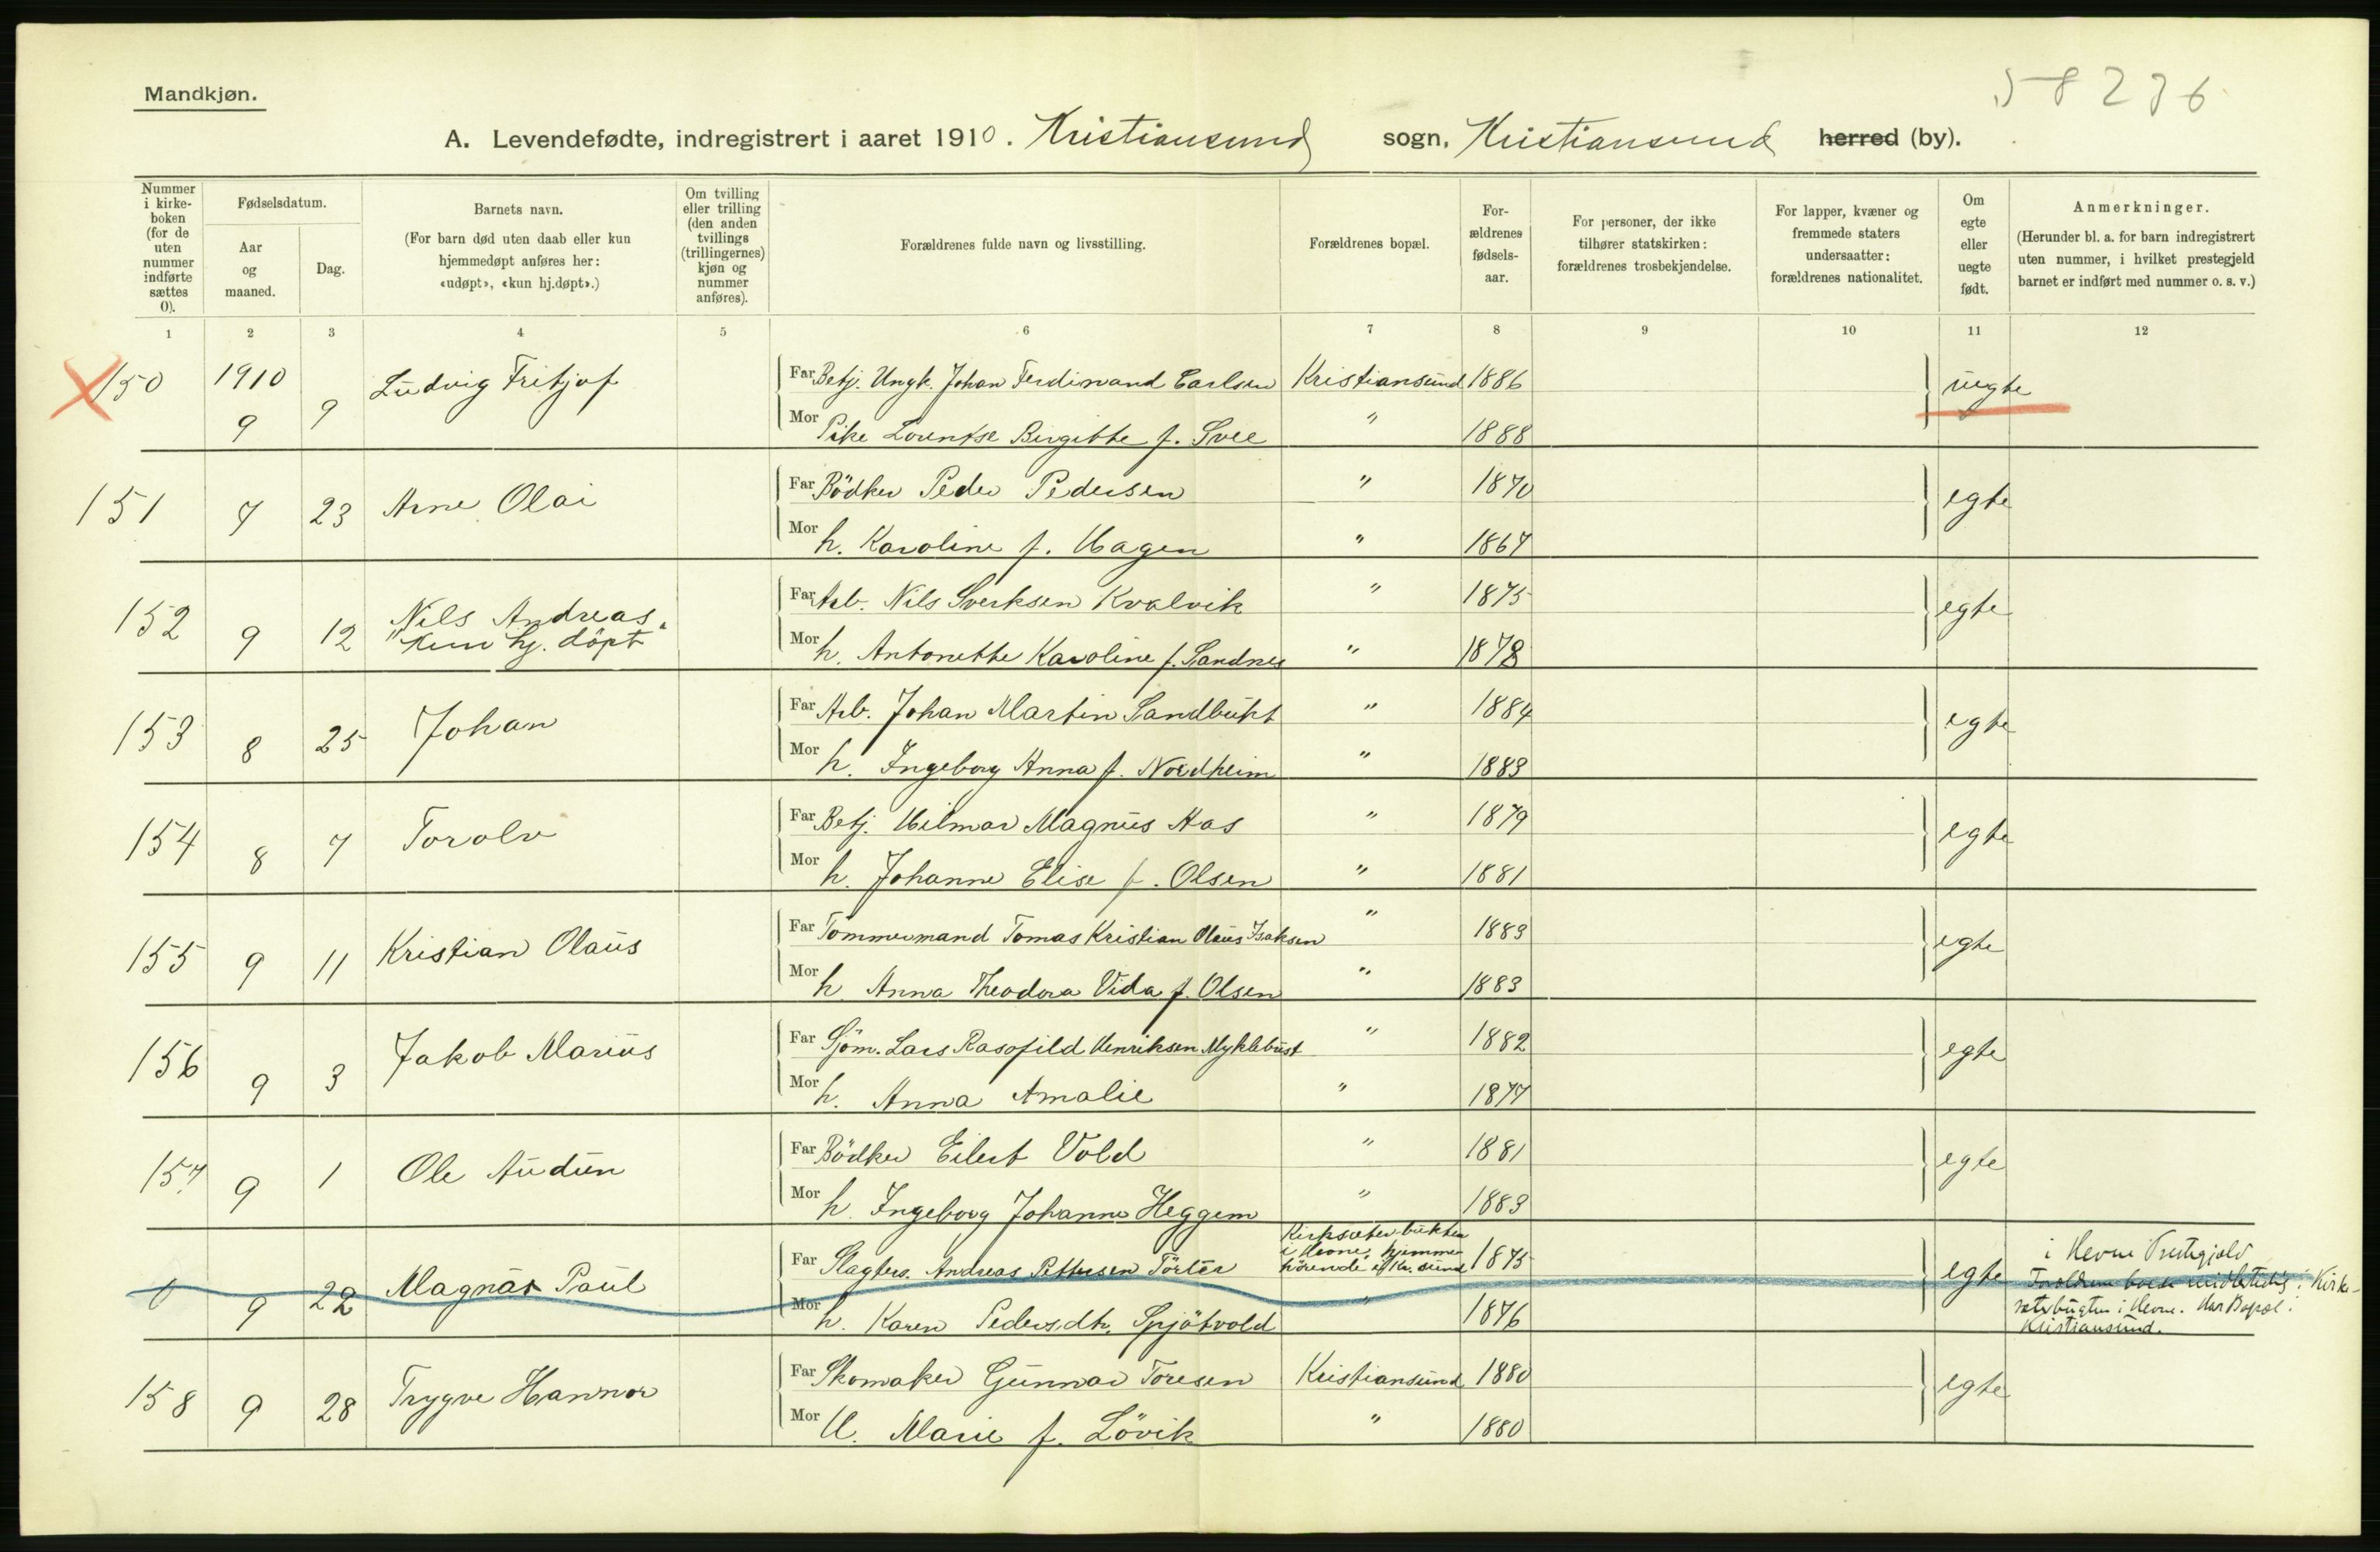 58236
Mandkjøn.
A. Levendefødte, indregistrert i aaret 1910. Kristiansund sogn, Kristiansund herred (by).
Nummer i kirke-boken (for de uten nummer indførte sættes 0).
Fødselsdatum.
Aar og maaned.
Dag.
Barnets navn.
(For barn død uten daab eller kun hjemmedøpt anføres her: «udøpt», «kun hj.døpt».)
Om tvilling eller trilling (den anden tvillings (trillingernes) kjøn og nummer anføres).
Forældrenes fulde navn og livsstilling.
Forældrenes bopæl.
For-ældrenes fødsels-aar.
For personer, der ikke tilhører statskirken: forældrenes trosbekjendelse.
For lapper, kvæner og fremmede staters undersaatter: forældrenes nationalitet.
Om egte eller uegte født.
Anmerkninger.
(Herunder bl. a. for barn indregistrert uten nummer, i hvilket prestegjeld barnet er indført med nummer o. s. v.)
1 2 3 4 5 6 7 8 9 10 11 12
150 1910 9 9 Ludvig Fritjof Far Betj. Ungk. Johan Ferdinand Carlsen Kristiansund 1886 uegte
Mor Pike Lorentse Birgitte f. Svee " 1888
151 7 23 Arne Olai Far Bödker Peder Pedersen " 1870 egte
Mor h. Karoline f. Hagen " 1867
152 9 12 Nils Andreas. "kun hj. döpt" Far Arb. Nils Sverksen Kvalvik " 1875 egte
Mor h. Antonette Karoline f. Sandnes " 1878
153 8 25 Johan Far Arb. Johan Martin Sandbukt " 1884 egte
Mor h. Ingeborg Anna f. Nordheim " 1883
154 8 7 Torolv Far Betj. Hilmar Magnus Aas " 1879 egte
Mor h. Johanne Elise f. Olsen " 1881
155 9 11 Kristian Olaus Far Tömmermand Tomas Kristian Olaus Isaksen " 1883 egte
Mor h. Anna Theodora Vida f. Olsen " 1883
156 9 3 Jakob Marius Far Sjöm. Lars Rasofild Henriksen Myklebust " 1882 egte
Mor h. Anna Amalie " 1877
157 9 1 Ole Audun Far Bödker Eilert Vold " 1881 egte
Mor h. Ingeborg Johanne Heggem " 1883
0 9 22 Magnar Paul Far Slagters. Andreas Pettersen Kirksæterbukten i Hevne, hjemmehörende i Kr.sund 1875 egte i Hevne Prestegjeld
Mor h. Karen Pedersdtr. Spjötvold " 1876 Forældrene boede midlertidig i Kirksæterbugten i Hevne. Har Bopæl i Kristiansund.
158 9 28 Trygve Hannor Far Skomaker Gunnar Toresen Kristiansund 1880 egte
Mor H. Marie f. Lövik " 1880